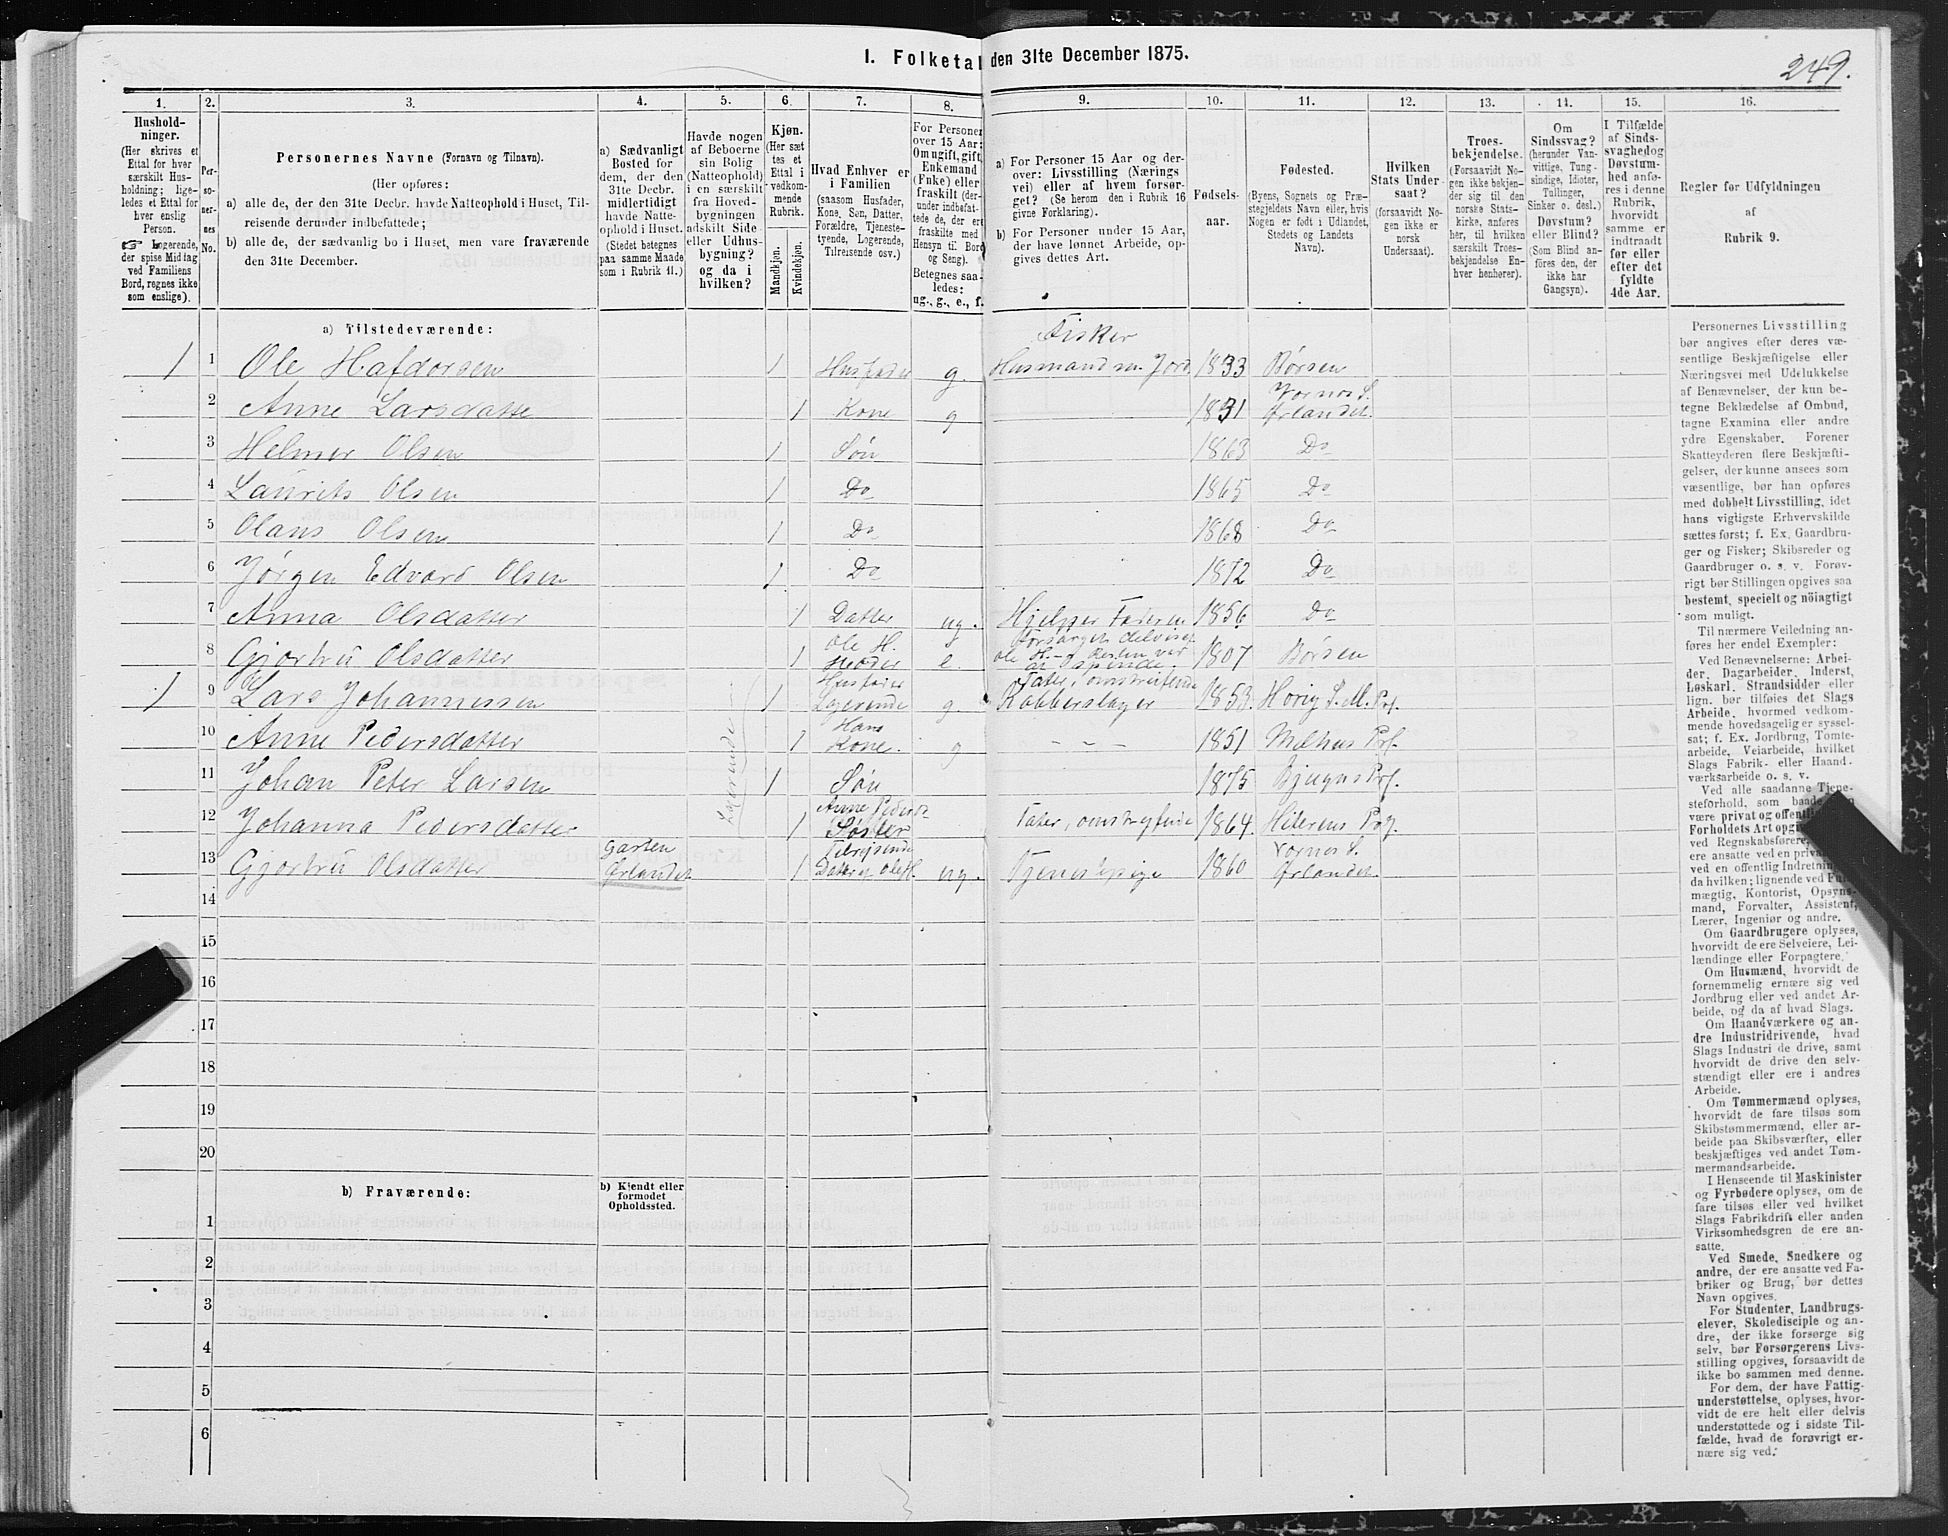 I. Folketal den 31te December 1875.
249.
1. 2. 3. 4. 5. 6. 7. 8. 9. 10. 11. 12. 13. 14. 15. 16.
Hushold-
ninger.
(Her skrives et
Ettal for hver
særskilt Hus-
holdning; lige-
ledes et Ettal for
hver enslig
Person.
☞ Logerende,
der spise Middag
ved Familiens
Bord, regnes ikke
som enslige).
Per-
so-
ner-
nes
No.
Personernes Navne (Fornavn og Tilnavn).
(Her opføres:
a) alle de, der den 31te Decbr. havde Natteophold i Huset, Til-
reisende derunder indbefattede;
b) alle de, der sædvanlig bo i Huset, men vare fraværende
den 31te December.
a) Sædvanligt
Bosted for
dem, der den
31te Decbr.
midlertidigt
havde Natte-
ophold i Huset.
(Stedet betegnes
paa samme Maade
som i Rubrik 11.)
Havde nogen
af Beboerne
sin Bolig
(Natteophold)
i en særskilt
fra Hoved-
bygningen
adskilt Side-
eller Udhus-
bygning?
og da i
hvilken?
Kjøn.
(Her sæt-
tes et
Ettal i
vedkom-
mende
Rubrik.
Mandkjøn.
Kvindekjøn.
Hvad Enhver er
i Familien
(saasom Husfader,
Kone, Søn, Datter,
Forældre, Tjeneste-
tyende, Logerende,
Tilreisende osv.)
For Personer
over 15 Aar:
Om ugift, gift,
Enkemand
(Enke) eller
fraskilt (der-
under indbefat-
tede de, der ere
fraskilte med
Hensyn til Bord
og Seng).
Betegnes saa-
ledes:
ug., g., e., f.
a) For Personer 15 Aar og der-
over: Livsstilling (Nærings
vei) eller af hvem forsør-
get? (Se herom den i Rubrik 16
givne Forklaring).
b) For Personer under 15 Aar,
der have lønnet Arbeide, op-
gives dettes Art.
Fødsels-
aar.
Fødested.
(Byens, Sognets og Præ-
stegjeldets Navn eller, hvis
Nogen er født i Udlandet,
Stedets og Landets
Navn).
Hvilken
Stats Under-
saat?
(forsaavidt No-
gen ikke er
norsk
Undersaat).
Troes-
bekjendelse.
(Forsaavidt No-
gen ikke bekjen-
der sig til den
norske Stats-
kirke, anføres
her, til hvilken
særskilt Troes-
bekjendelse En-
hver henhører).
Om
Sindssvag?
(herunder Van-
vittige, Tung-
sindige, Idioter,
Tullinger,
Sinker o. desl.)
Døvstum?
eller Blind?
(Som Blind an-
føres den, der
ikke har
Gangsyn).
I Tilfælde
af Sinds-
svaghed og
Døvstum-
hed anfø-
res i denne
Rubrik,
hvorvidt
samme er
indtraadt
før eller
efter det
fyldte
4de Aar.
Regler for Udfyldningen
af
Rubrik 9.
a) Tilstedeværende:
Fisker
1 1 Ole Hafdorsen 1 Husfader g. Husmand m. Jord 1833 Børsen
2 Anne Larsdatte 1 Kone g 1831 Vornes S. Ørlandet
3 Helmer Olsen 1 Søn 1863 Do
4 Laurits Olsen 1 Do 1865 Do
5 Olaus Olsen 1 Do 1868 Do
6 Jørgen Edvard Olsen 1 Do 1872 Do
7 Anna Olsdatter 1 Datter ug. Hjelper Faderen 1856 Do
8 Gjørtru Olsdatter 1 Ole H. Moder e. Forsørges delvis af Ole H. 1807 Børsen
1 9 Lars Johannessen 1 Husfader Logerende g Tater, omstreifende Kobberslager 1853. Horig S. M. Prf.
10 Anne Pedersdatter 1 Hans Kone. g - - - 1851 Mælhus Prf.
11 Johan Peter Larsen 1 Søn 1875 Bjugns Prf.
Logerende
12 Johanna Pedersdatter 1 Anne Peders Søster Tater, omstreifende 1864. Hiterens Prg.
13 Gjørtru Olsdatter Garten Ørlandet 1 Tilreisende Datter af Ole H. ug. Tjenestepige 1860 Vornes S. Ørlandet.
14
15
16
17
18
19
20
b) Fraværende:
b) Kjendt eller
formodet
Opholdssted.
1
2
3
4
5
6
Personernes Livsstilling
bør angives efter deres væ-
sentlige Beskjæftigelse eller
Næringsvei med Udelukkelse
af Benævnelser, der kun be-
tegne Beklædelse af Ombud,
tagne Examina eller andre
ydre Egenskaber. Forener
Skatteyderen flere Beskjæfti-
gelser, der kunne ansees som
væsentlige, bør han opføres
med dobbelt Livsstilling, idet
hans vigtigste Erhvervskilde
sættes først; f. Ex. Gaardbru-
ger og Fisker; Skibsreder og
Gaardbruger o. s. v. Forøv-
rigt bør Stillingen opgives saa
bestemt, specielt og nöiagtigt
som muligt.
Til nærmere Veiledning an-
føres her endel Exempler:
Ved Benævnelserne: Arbei-
der, Dagarbeider, Inderst,
Løskarl, Strandsidder eller
lign. bør tilføies det Slags
Arbeide, hvormed vedkom-
mende hovedsagelig er syssel-
sat; f. Ex. Jordbrug, Tomte-
arbeide, Veiarbeide, hvilket
Slags Fabrik- eller Haand-
værksarbeide o. s. v.
Ved alle saadanne Tjene-
steforhold, som baade
være privat og offentlig,
Forholdets Art opgives,
ved Regnskabsførere,
ere ansatte ved en privat
ved en offentlig Indretning
da hvilken; lignende ved Fuld-
mægtig, Kontorist, Opsyns-
mand, Forvalter, Assistent,
Lærer, Ingeniør og andre.
Om Gaardbrugere oplyses,
hvorvidt de ere Selveiere, Lei-
lændinge eller Forpagtere.
Om Husmænd, hvorvidt de
fornemmelig ernære sig ved
Jordbrug eller ved andet Ar-
beide, og da af hvad Slags.
Om Haandværkere og an-
dre Industridrivende, hvad
Slags Industri de drive, samt
hvorvidt de drive den selv-
stændigt eller ere i andres
Arbeide.
Om Tømmermænd oplyses,
hvorvidt de fare tilsøs som
Skibstømmermænd, eller ar-
beide paa Skibsværfter, eller
beskjæftiges ved andet Tøm-
mermandsarbeide.
I Henseende til Maskinister
og Fyrbødere oplyses, om de
fare tilsøs eller ved hvilket
Slags Fabrikdrift eller anden
Virksomhedsgren de ere an-
satte.
Ved Smede, Snedkere og
andre, der ere ansatte ved Fa-
briker og Brug, bør dettes
Navn opgives.
For Studenter, Landbrugs-
elever, Skoledisciple og an-
dre, der ikke forsørge sig
selv, bør Forsørgerens Livs-
stilling opgives, forsaavidt de
ikke bo sammen med denne.
For dem, der have Fattig-
understøttelse, oplyses, hvor-
vidt de ere helt eller delvis
understøttede og i sidste Til-
fælde, hvad de forøvrigt er-
nære sig ved.